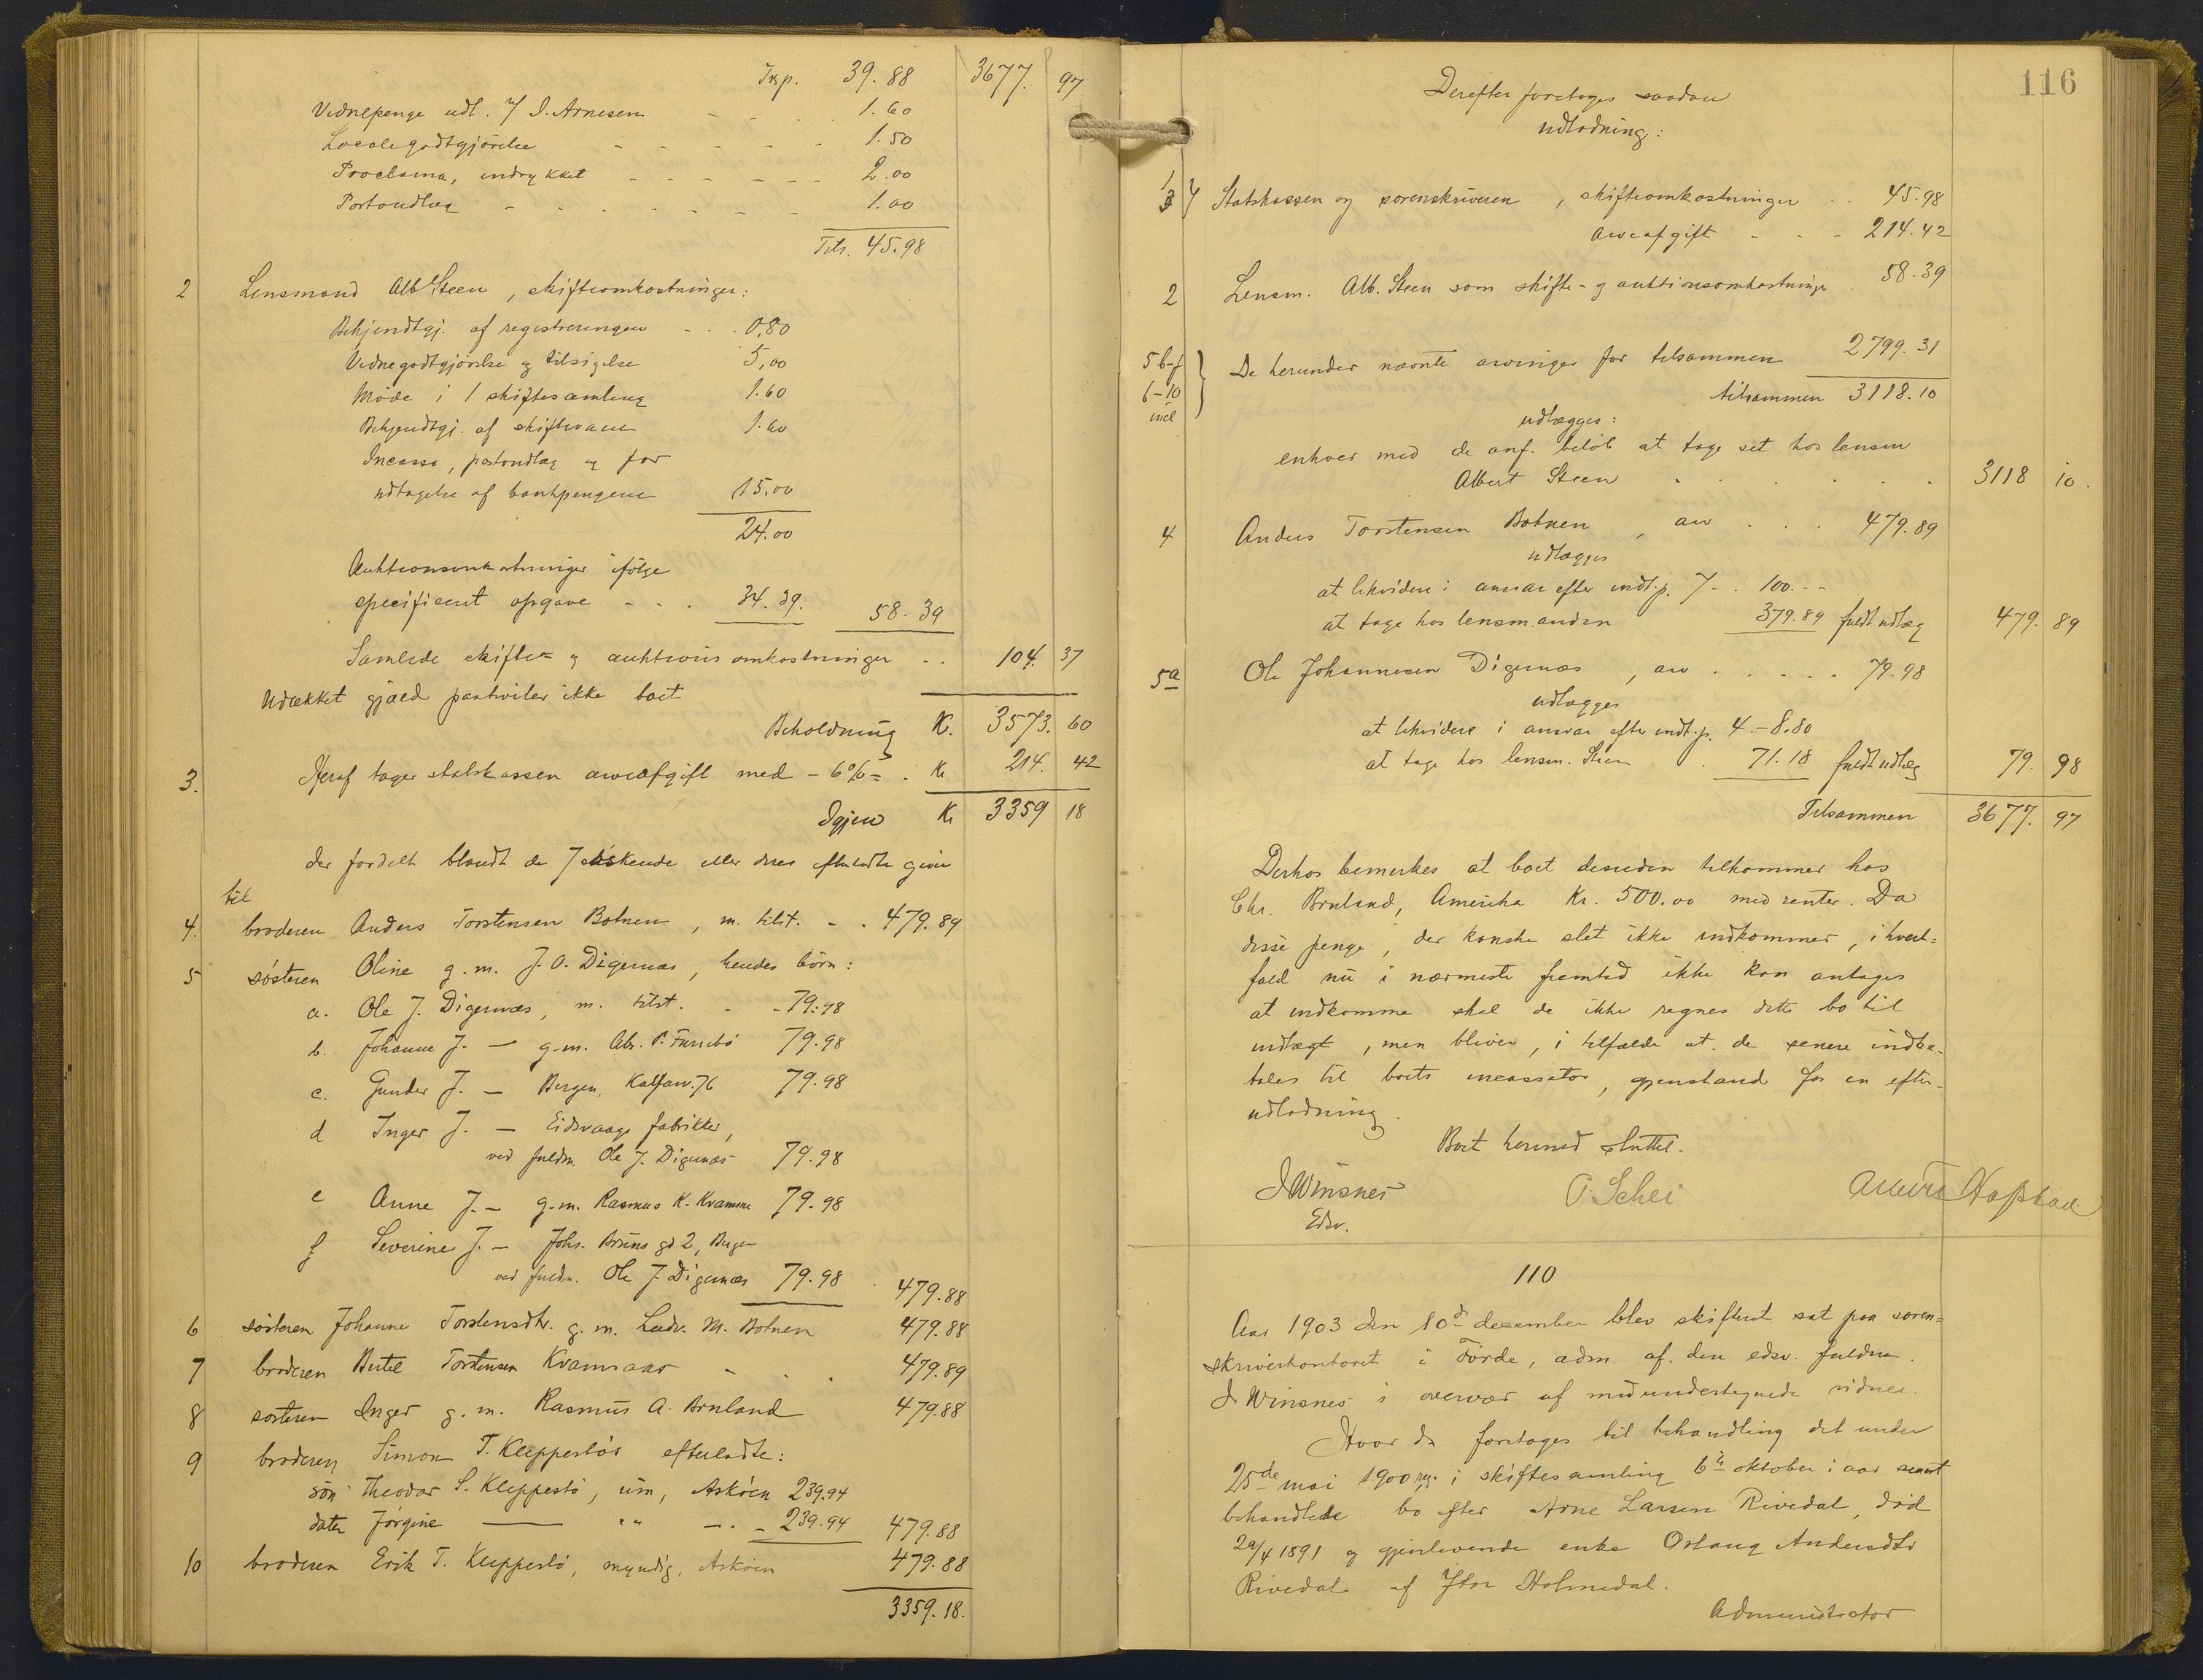 Trp. 39.88 3677. 97
Vidnepenge udl. J. Arnesen - - 1.60
Localegodtgjörelse - - - - - 1.50
Proclama, indrykket - - - - - - 2.00
Portoudlæg - - - - - - - 1.00
Tils. 45.98
2 Lensmand Alb. Steen, skifteomkostninger:
Bekjendtgj. af registreringen - - 0,80
Vidnegodtgjörelse og tilsigelse 5,00
Möde i 1 skiftesamling 1.60
Bekjendtgj. af skiftevaren 1.60
Incasso, portoudlæg og for
udtagelse af bankpengene 15,00
24.00
Auktionsomkostninger ifölge
specificert opgave - - - 34.39. 58.39
Samlede skifte- og auktions omkostninger - - 104. 37
Udækket gjæld paahviler ikke boet
Beholdning K. 3573. 60
3. Heraf tager statskassen arveafgift med - 6% = . Kr 214. 42
Igjen Kr 3359 18
der fordelt blandt de 7 söskende eller deres efterladte giver
til
4. broderen Anders Torstensen Botnen, m. tilst. - . 479.89
5 sösteren Oline g.m. J.O. Digernæs, hendes börn:
a. Ole J. Digernæs, m. tilst. . - 79.98
b. Johanne J. — g.m. Abr. P. Furebö 79.98
c. Gunder J. — Bergen, Kalfarv. 76 79.98
d Inger J. — Eidsvaags fabrikker,
ved fuldm. Ole J. Digernæs 79.98
e Anne J. — g.m. Rasmus K. Kvamme 79.98
f Severine J. — Johs. Bruns gd 2, Bergen
ved fuldm. Ole J. Digernæs 79.98 . 479.88
6 sösteren Johanne Torstensdtr. g.m. Ludv. M. Botnen 479.88
7 broderen Bertel Torstensen Kvamsaas - . . 479.89
8 sösteren Inger g.m. Rasmus A. Bruland 479.88
9 broderen Simon T. Kleppestös efterladte:
sön Theodor S. Kleppestö, um, Asköen 239.94
datter Jörgine — " — . - 239.94 479.88
10 broderen Erik T. Kleppestö, myndig, Asköen 479.88
3359.18.
116
Derefter foretages saadan
udlodning:
1 3 Statskassen og sorenskriveren, skifteomkostninger . . 45.98
Arveafgift - - - 214.42
2 Lensm. Alb. Steen som skifte- og auktionsomkostninger . 58.39
5 b-f
6-10
incl
De herunder nævnte arvinger for tilsammen 2799.31
tilsammen 3118.10
udlægges:
enhver med de anf. belöb at tage sit hos lensm
Albert Steen . . . . . . 3118 10.
4 Anders Torstensen Botnen, arv . . . 479.89
udlægges
at likvidere i ansvar efter indt.p. 7 - . 100. - -
at tage hos lensmanden 379.89 fuldt udlæg 479. 89
5a Ole Johannesen Digernæs, arv . . . . . 79.98
udlægges
at likvidere i ansvar efter indt.p. 4. - 8.80
at tage hos lensm. Steen . 71.18 fuldt udlæg 79. 98
Tilsammen 3677. 97
Derhos bemerkes at boet desuden tilkommer hos
Chr. Bruland, Amerika Kr. 500.00 med renter. Da
disse penge, der kanske slet ikke indkommer, i hvert-
fald nu i nærmeste fremtid ikke kan antages
at indkomme skal de ikke regnes dette bo til
indtægt, men bliver, i tilfælde at de senere indbe-
tales til boets incassator, gjenstand for en efter-
udlodning.
Boet hermed sluttet.
J Winsnes P. Schei Hopstad
Edsv.
110
Aar 1903 den 10de december blev skifteret sat paa soren-
skriverkontoret i Förde, adm. af den edsv. fuldm.
J Winsnes i overvær af medundertegnede vidner.
Hvor da foretages til behandling det under
25de mai 1900 reg. i skiftesamling 6te oktober i aar senest
behandlede bo efter Arne Larsen Rivedal, död
29/4 1891 og gjenlevende enke Oslaug Andersdtr
Rivedal af Ytre Holmedal.
Administrator